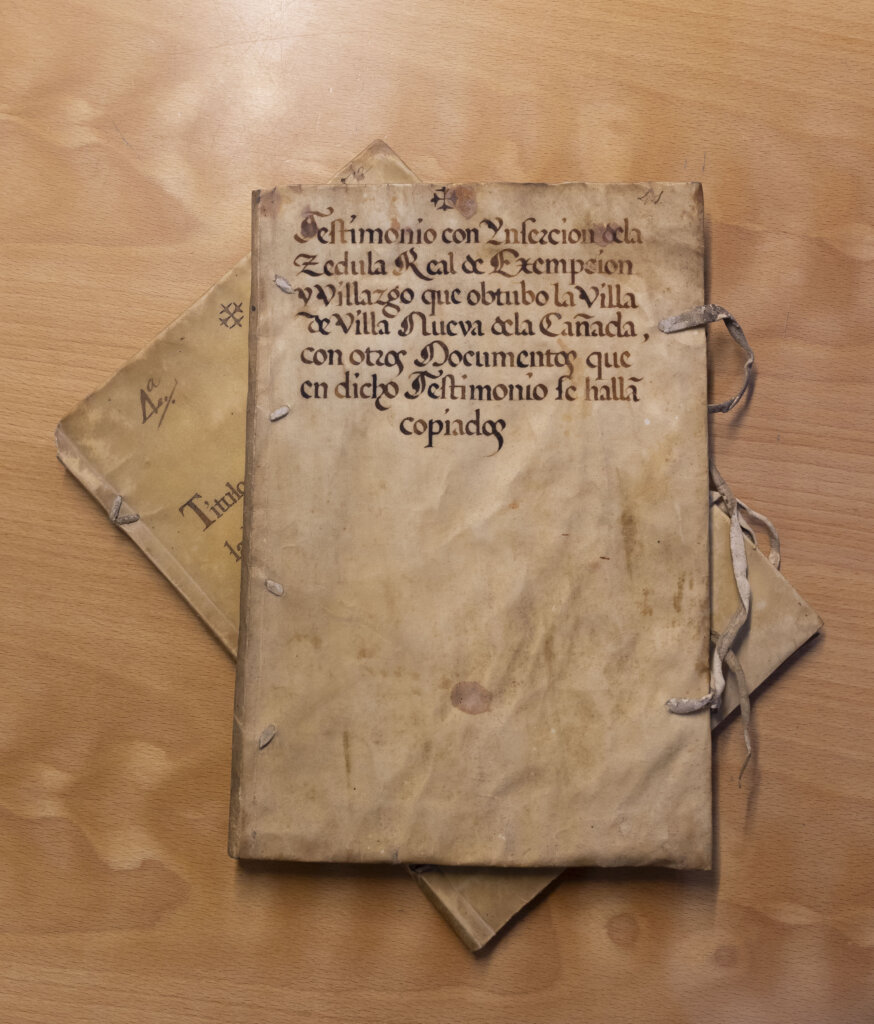 Testimonio con Ynsercion dela
Zedula Real de Exempcion
y Villazgo que obtubo la Villa
de Villā Nueva dela Cañada,
con otros Documentos que
en dicho Testimonio se hallā
copiados
4ª
Titulo